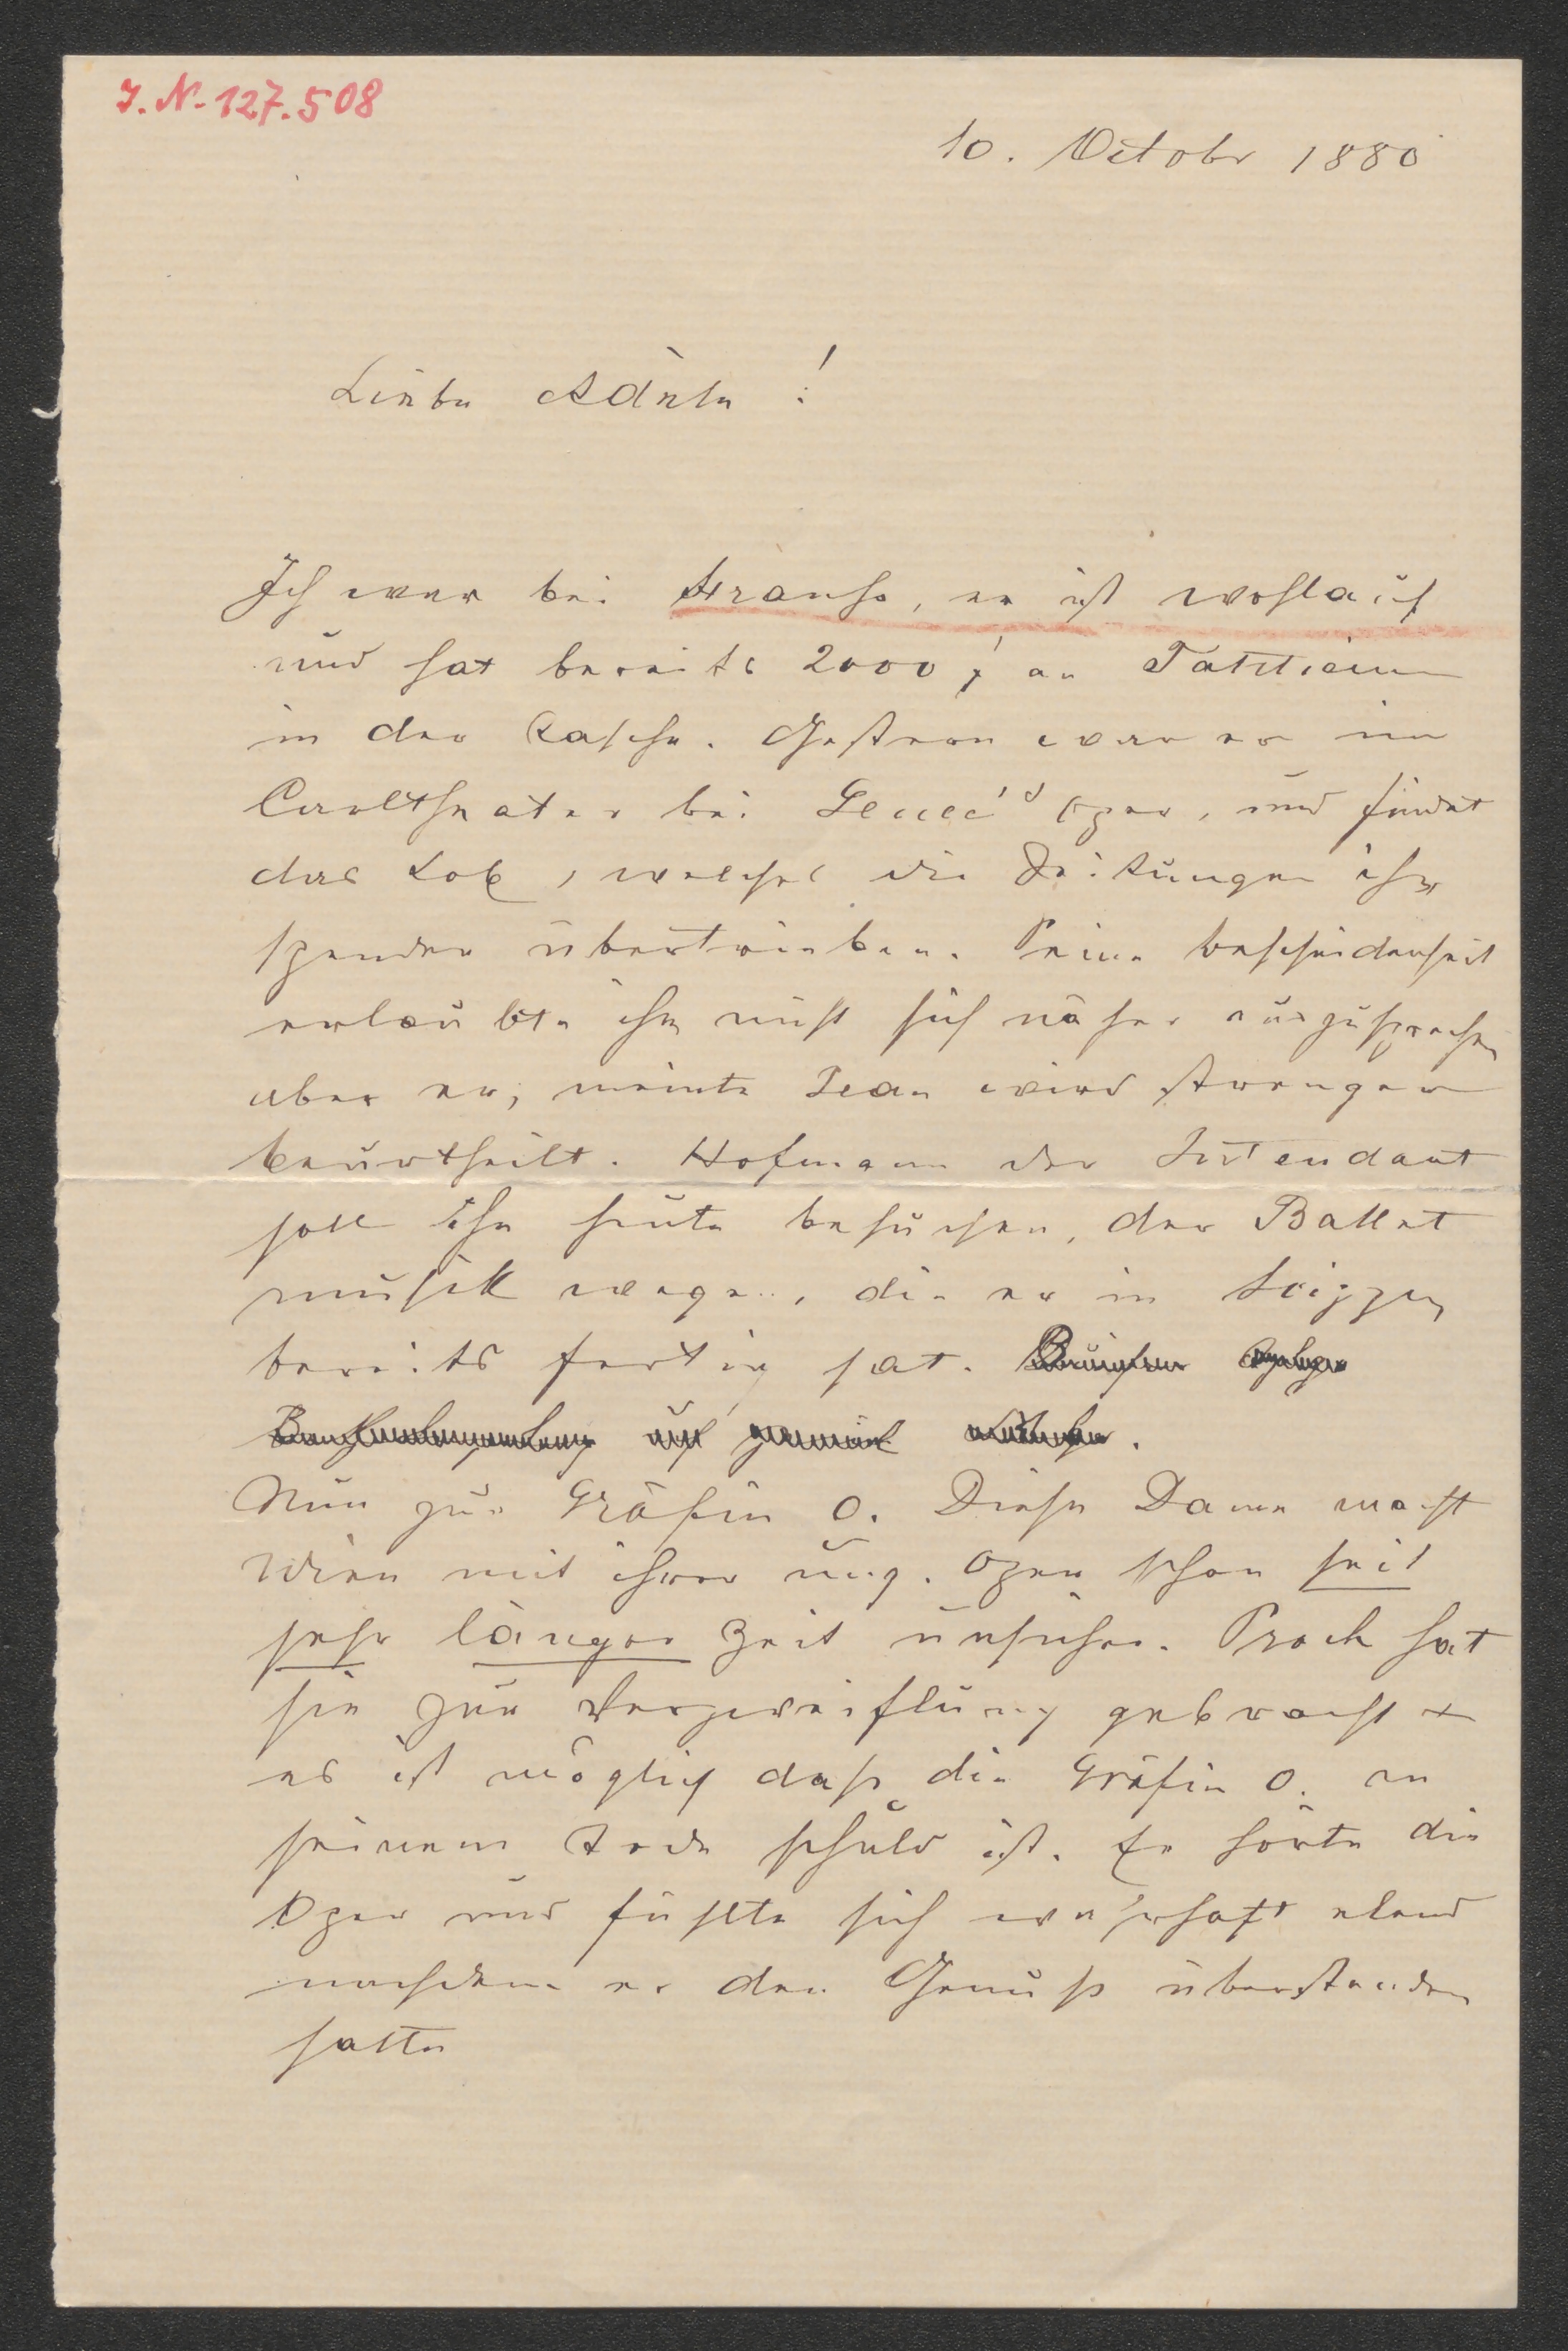 J. N. 127.508
10. Octobr 1880
Liebe Adèle!
Ich war bei Strauss, er ist wohlauf
und hat bereits 2000 f an Tantiemen
in der Tasche. Gestern war er im
Carltheater bei Geneé's Oper, und findet
das Lob, welches die Zeitungen ihm
spenden übertrieben. Seine Bescheidenheit
erlaubte ihm nicht sich näher auszusprechen
aber er, meinte Jean wird strenger
beurtheilt. Hofmann der Intendant
soll ihn heute besuchen, der Ballet
musik wegen, die er in Skizzen
bereits fertig hat.
Nun zur Gräfin O. Diese Dame macht
Wien mit ihrer ung. Oper schon seit
sehr langer Zeit unsicher. Proch hat
sie zur Verzweiflung gebracht +
es ist möglich dass die Gräfin O. an
seinem Tode schuld ist. Er hörte die
Oper und fühlte sich wahrhaft elend
nachdem er den Genuss überstanden
hatte